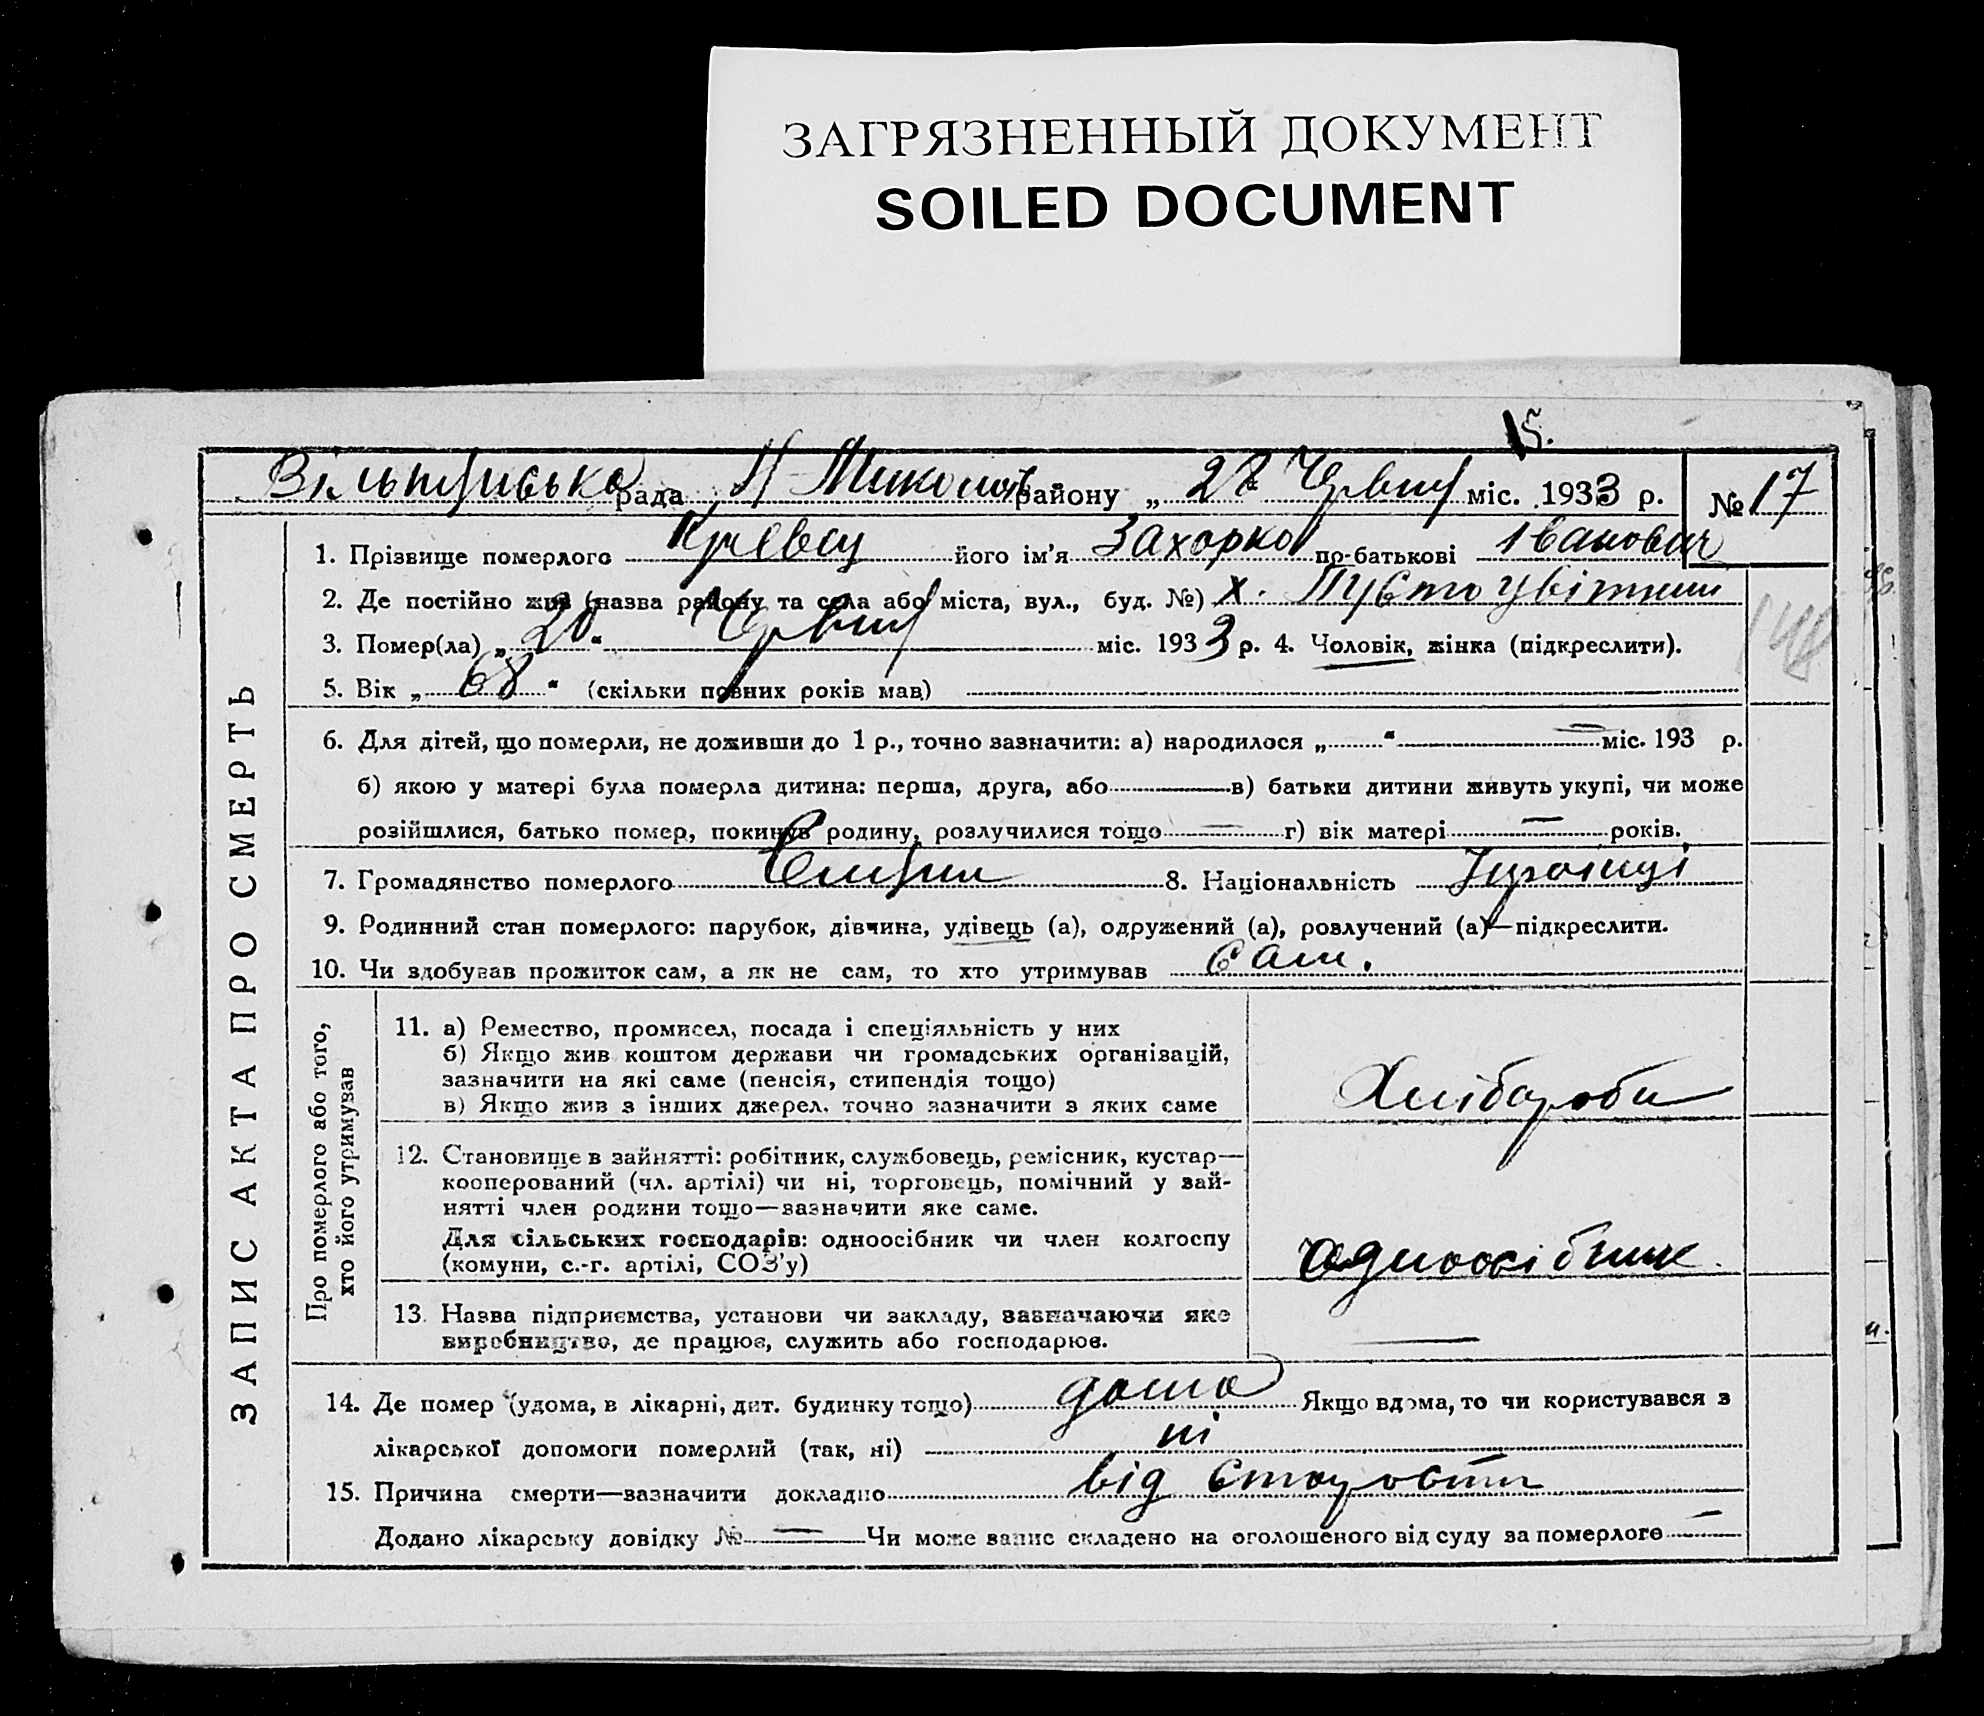 ЗАГРЯЗНЕННЫЙ ДОКУМЕНТ
SOILED DOCUMENT
15.
рада району „ 28 Червня міс. 1933 р. № 17
1. Прізвище померлого його ім’я Захарко по-батькові Іванович
2. Де постійно жив (назва району та села або міста, вул., буд. №) х.
3. Помер(ла) „ 20 “ Червня міс. 1933 р. 4. Чоловік, жінка (підкреслити).
5. Вік „ 68 “ (скільки повних років мав)
6. Для дітей, що померли, не доживши до 1 р., точно зазначити: а) народилося „ “ — міс. 193 р.
б) якою у матері була померла дитина: перша, друга, або — в) батьки дитини живуть укупі, чи може
розійшлися, батько помер, покинув родину, розлучилися тощо — г) вік матері — років.
7. Громадянство померлого 8. Національність
9. Родинний стан померлого: парубок, дівчина, удівець (а), одружений (а), розлучений (а)—підкреслити.
10. Чи здобував прожиток сам, а як не сам, то хто утримував сам.
ЗАПИС АКТА ПРО СМЕРТЬ
Про померлого або того,
хто його утримував
11. а) Ремество, промисел, посада і спеціяльність у них
б) Якщо жив коштом держави чи громадських організацій,
зазначити на які саме (пенсія, стипендія тощо)
в) Якщо жив з інших джерел, точно зазначити з яких саме
Хлібороб
12. Становище в зайнятті: робітник, службовець, ремісник, кустар—
кооперований (чл. артілі) чи ні, торговець, помічний у зай-
нятті член родини тощо—зазначити яке саме.
Для сільських господарів: одноосібник чи член колгоспу
(комуни, с.-г. артілі, СОЗ’у)
одноосібник.
13. Назва підприємства, установи чи закладу, зазначаючи яке
виробництво, де працює, служить або господарює.
—
14. Де помер (удома, в лікарні, дит. будинку тощо) дома Якщо вдома, то чи користувався з
лікарської допомоги померлий (так, ні) ні
15. Причина смерти—зазначити докладно від старости
Додано лікарську довідку № — Чи може запис складено на оголошеного від суду за померлого —